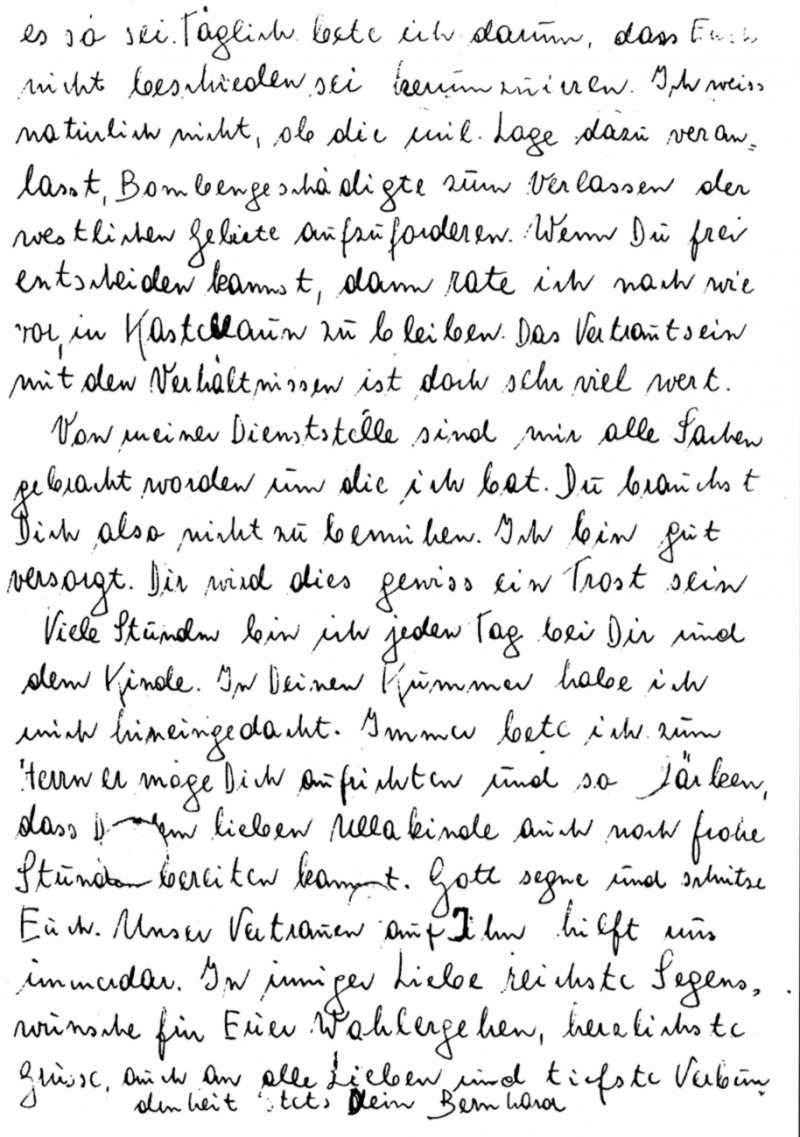 es so sei. Täglich bete ich darum, dass Euch
nicht beschieden sei herumzuirren. Ich weiss
natürlich nicht, ob die mil. Lage dazu veran=
lasst, Bombengeschädigte zum Verlassen der
westlichen Gebiete aufzufordern. Wenn Du frei
entscheiden kannst, dann rate ich nach wie
vor, in Kastellaun zu bleiben. Das Vertrautsein
mit den Verhältnissen ist doch sehr viel wert.
Von meiner Dienststelle sind mir alle Sachen
gebracht worden um die ich bat. Du brauchst
Dich also nicht zu bemühen. Ich bin gut
versorgt. Dir wird dies gewiss ein Trost sein
Viele Stunden bin ich jeden Tag bei Dir und
dem Kinde. In Deinen Kummer habe ich
mich hineingedacht. Immer bete ich zum
Herrn er möge Dich aufrichten und so stärken,
dass Du dem lieben Ullakinde auch noch frohe
Stunden bereiten kannst. Gott segne und schütze
Euch. Unser Vertrauen auf Ihn hilft uns
immerdar. In inniger Liebe reichste Segens=
wünsche für Euer Wohlergehen, herzlichste
Grüsse, auch an alle Lieben und tiefste Verbun=
denheit stets Dein Bernhard